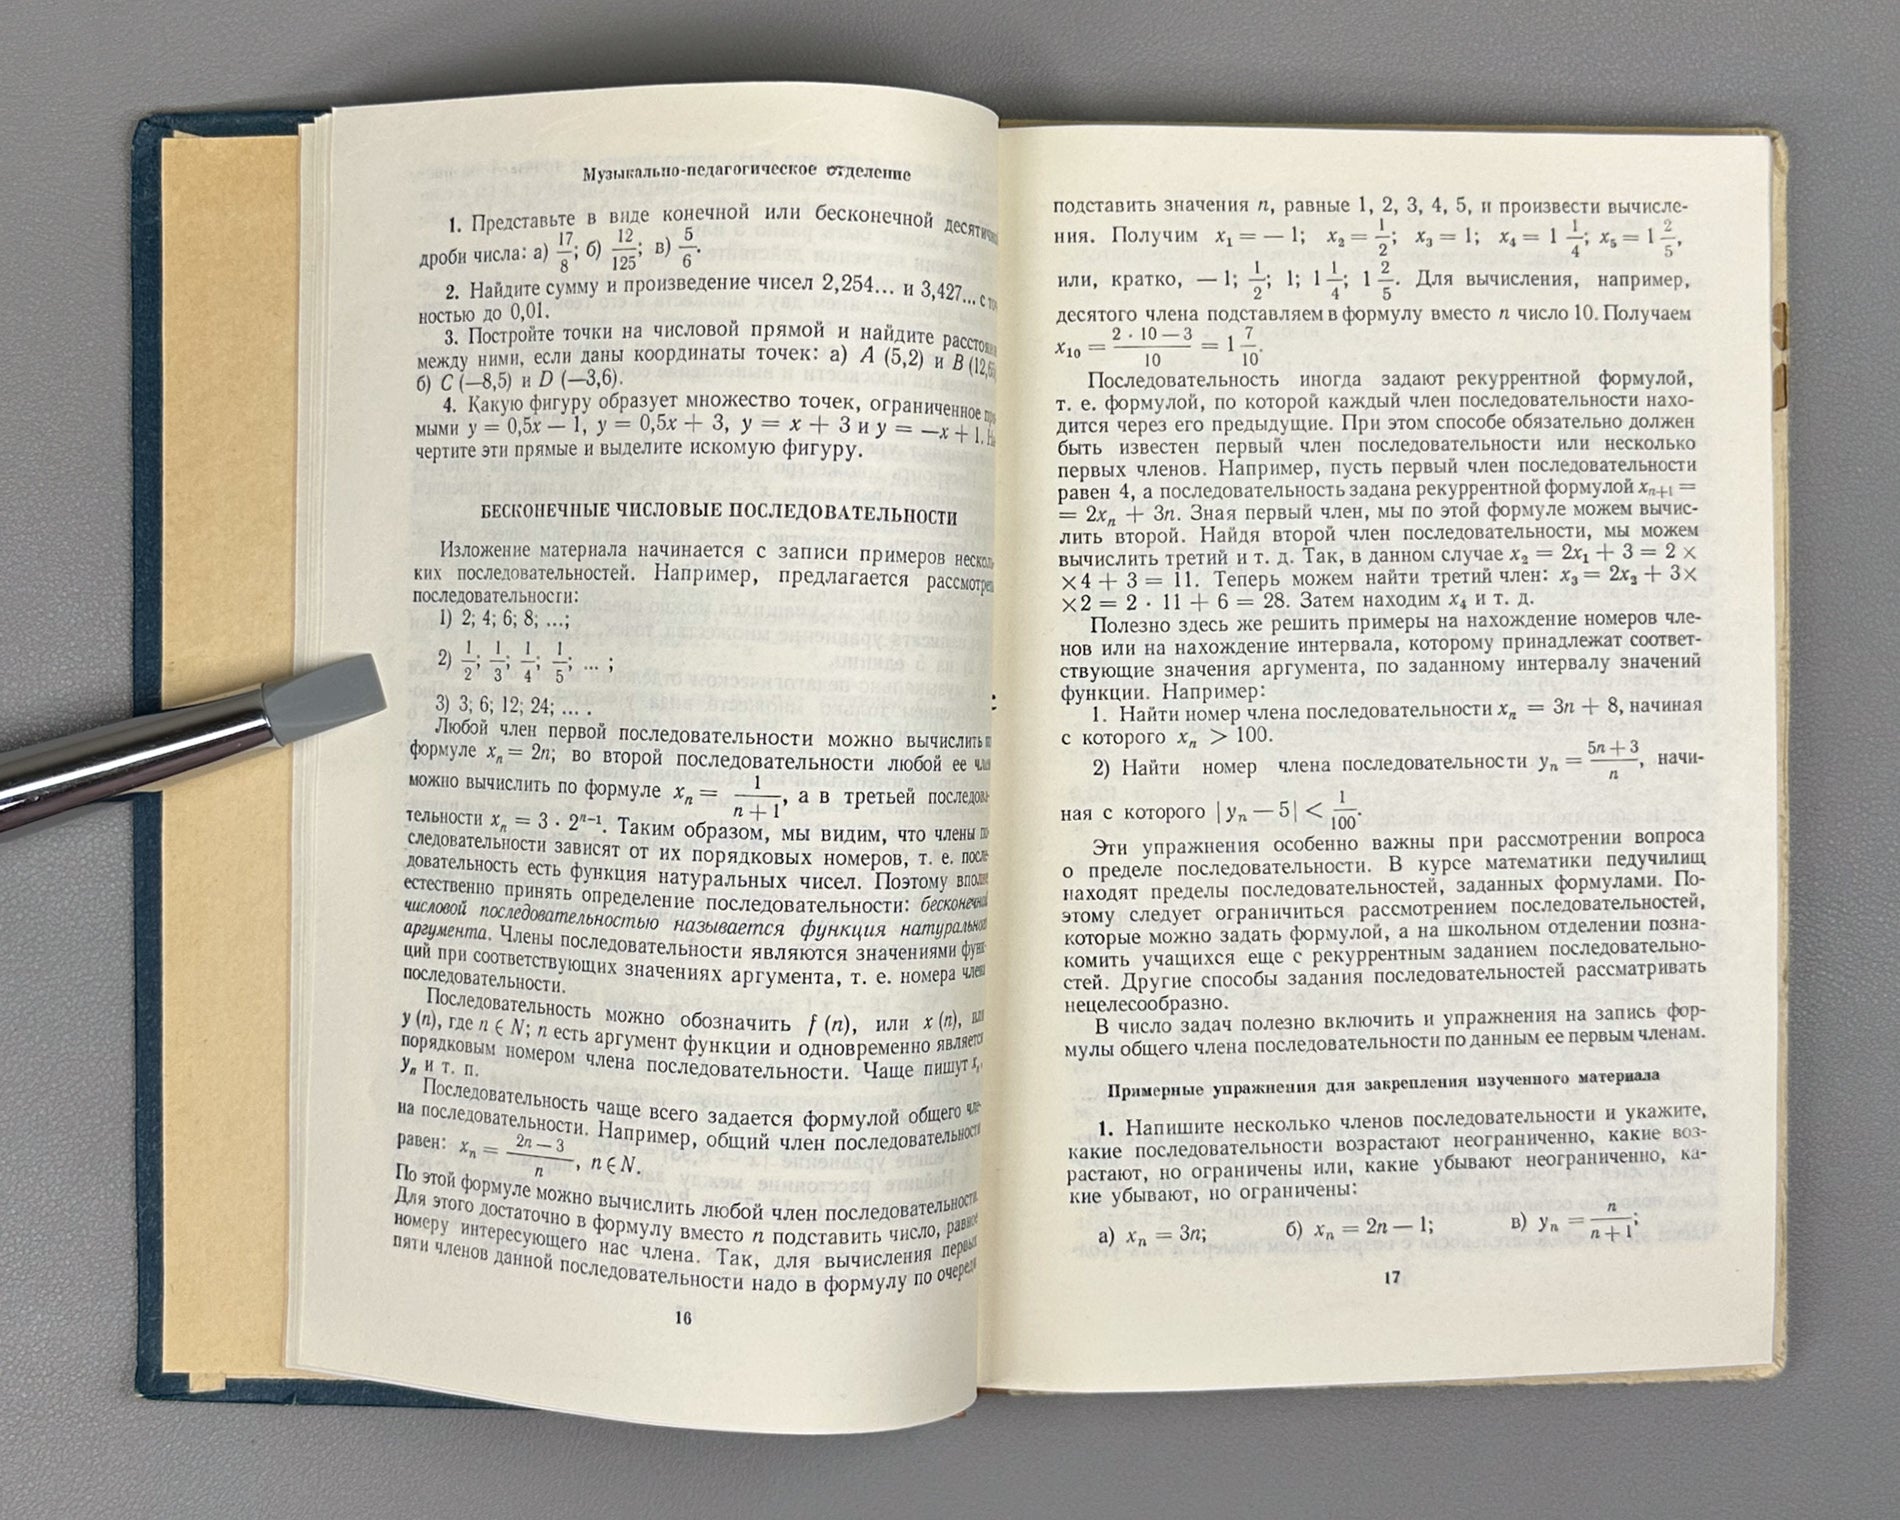 Музыкально-педагогическое отделение
1. Представьте в виде конечной или бесконечной
дроби числа: а) 17/8; б) 12/125; в) 5/6.
2. Найдите сумму и произведение чисел 2,254... и 3,427... с
ностью до 0,01.
3. Постройте точки на числовой прямой и найдите
между ними, если даны координаты точек: а) A (5,2) и B
б) C (—8,5) и D (—3,6).
4. Какую фигуру образует множество точек, ограниченное
мыми y = 0,5x — 1, y = 0,5x + 3, y = x + 3 и y = —x + 1.
чертите эти прямые и выделите искомую фигуру.
БЕСКОНЕЧНЫЕ ЧИСЛОВЫЕ ПОСЛЕДОВАТЕЛЬНОСТИ
Изложение материала начинается с записи примеров несколь-
ких последовательностей. Например, предлагается
последовательности:
1) 2; 4; 6; 8; ...;
2) 1/2; 1/3; 1/4; 1/5; ... ;
3) 3; 6; 12; 24; ... .
Любой член первой последовательности можно вычислить
формуле xₙ = 2n; во второй последовательности любой ее
можно вычислить по формуле xₙ = 1/(n + 1), а в третьей последова-
тельности xₙ = 3 · 2ⁿ⁻¹. Таким образом, мы видим, что члены по-
следовательности зависят от их порядковых номеров, т. е. после-
довательность есть функция натуральных чисел. Поэтому вполне
естественно принять определение последовательности:
числовой последовательностью называется функция
аргумента. Члены последовательности являются значениями функ-
ций при соответствующих значениях аргумента, т. е. номера члена
последовательности.
Последовательность можно обозначить f (n), или x (n), или
y (n), где n ∈ N; n есть аргумент функции и одновременно является
порядковым номером члена последовательности. Чаще пишут xₙ,
yₙ и т. п.
Последовательность чаще всего задается формулой общего чле-
на последовательности. Например, общий член последовательности
равен: xₙ = (2n — 3)/n, n ∈ N.
По этой формуле можно вычислить любой член последовательности.
Для этого достаточно в формулу вместо n подставить число, равное
номеру интересующего нас члена. Так, для вычисления первых
пяти членов данной последовательности надо в формулу по очереди
16
подставить значения n, равные 1, 2, 3, 4, 5, и произвести вычисле-
ния. Получим x₁ = — 1; x₂ = 1/2; x₃ = 1; x₄ = 1 1/4; x₅ = 1 2/5,
или, кратко, — 1; 1/2; 1; 1 1/4; 1 2/5. Для вычисления, например,
десятого члена подставляем в формулу вместо n число 10. Получаем
x₁₀ = (2 · 10 — 3)/10 = 1 7/10.
Последовательность иногда задают рекуррентной формулой,
т. е. формулой, по которой каждый член последовательности нахо-
дится через его предыдущие. При этом способе обязательно должен
быть известен первый член последовательности или несколько
первых членов. Например, пусть первый член последовательности
равен 4, а последовательность задана рекуррентной формулой xₙ₊₁ =
= 2xₙ + 3n. Зная первый член, мы по этой формуле можем вычис-
лить второй. Найдя второй член последовательности, мы можем
вычислить третий и т. д. Так, в данном случае x₂ = 2x₁ + 3 = 2 ×
×4 + 3 = 11. Теперь можем найти третий член: x₃ = 2x₂ + 3×
×2 = 2 · 11 + 6 = 28. Затем находим x₄ и т. д.
Полезно здесь же решить примеры на нахождение номеров чле-
нов или на нахождение интервала, которому принадлежат соответ-
ствующие значения аргумента, по заданному интервалу значений
функции. Например:
1. Найти номер члена последовательности xₙ = 3n + 8, начиная
с которого xₙ > 100.
2) Найти номер члена последовательности yₙ = (5n + 3)/n, начи-
ная с которого |yₙ — 5| < 1/100.
Эти упражнения особенно важны при рассмотрении вопроса
о пределе последовательности. В курсе математики педучилищ
находят пределы последовательностей, заданных формулами. По-
этому следует ограничиться рассмотрением последовательностей,
которые можно задать формулой, а на школьном отделении позна-
комить учащихся еще с рекуррентным заданием последовательно-
стей. Другие способы задания последовательностей рассматривать
нецелесообразно.
В число задач полезно включить и упражнения на запись фор-
мулы общего члена последовательности по данным ее первым членам.
Примерные упражнения для закрепления изученного материала
1. Напишите несколько членов последовательности и укажите,
какие последовательности возрастают неограниченно, какие воз-
растают, но ограничены или, какие убывают неограниченно, ка-
кие убывают, но ограничены:
а) xₙ = 3n; б) xₙ = 2n — 1; в) yₙ = n/(n + 1);
17